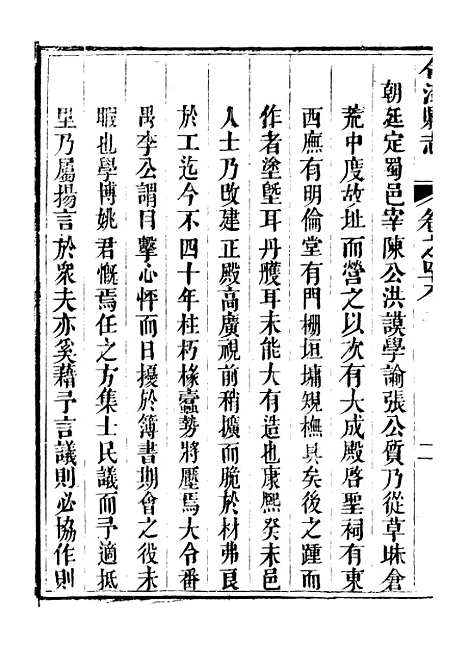 江縣志
卷之
二
朝廷定蜀邑宰陳公洪謨學諭張公質乃從草昧倉
荒中度故址而營之以次有大成殿啓聖祠有東
西廡有明倫堂有門棚垣墉規橅具矣後之踵而
作者塗塈耳丹雘耳未能大有造也康熙癸未邑
人士乃改建正殿高廣視前稍擴而脆於材弗良
於工迄今不四十年柱朽椽蠹勢將壓焉大令番
禺李公謂目擊心怦而日擾於簿書期會之役未
暇也學博姚君慨焉任之方集士民議而予適抵
里乃屬揚言於衆夫亦奚藉予言議則必協作則